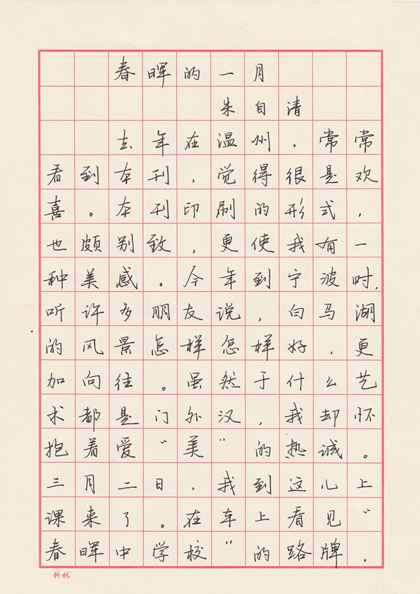 春晖的一月
朱自清
去年在温州，常常
看到本刊，觉得很是欢
喜。本刊印刷的形式，
也颇别致，更使我有一
种美感。今年到宁波时，
听许多朋友说，白马湖
的风景怎样怎样好，更
加向往。虽然于什么艺
术都是门外汉，我却怀
抱着爱“美”的热诚。
三月二日，我到这儿上
课来了。在车上看见“
春晖中学校”的路牌，
科林